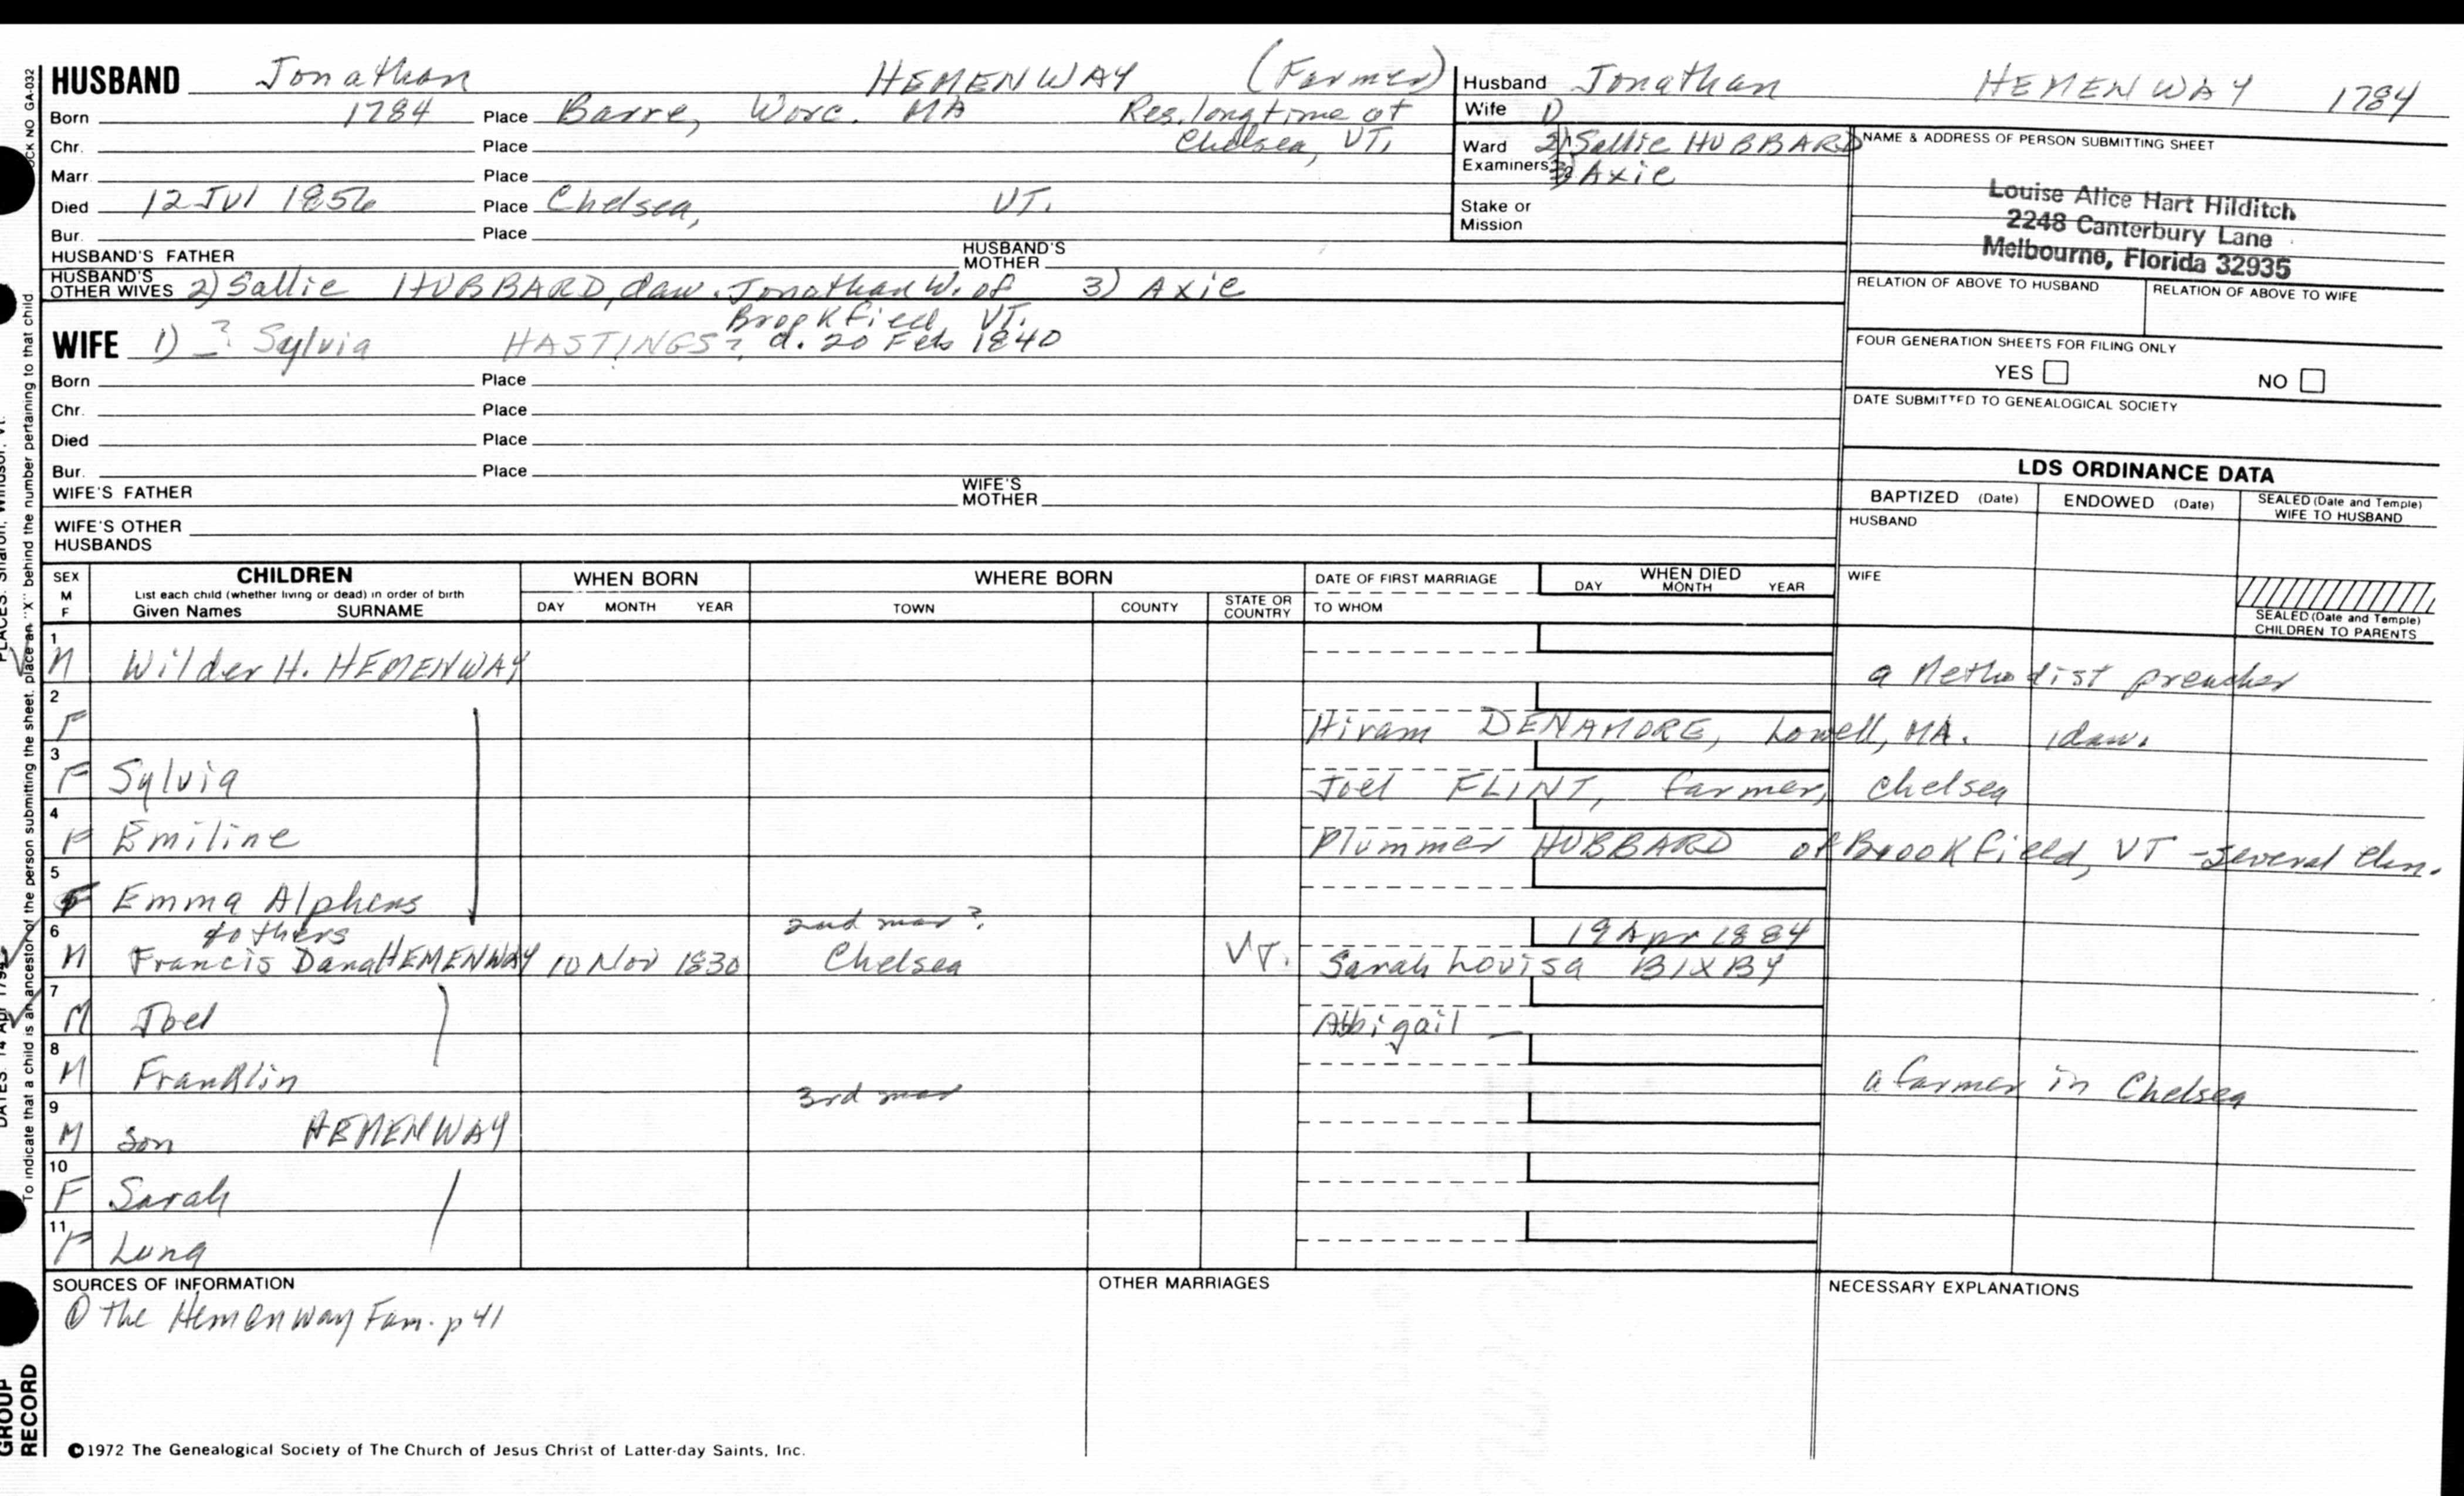 HUSBAND Jonathan HEMENWAY (Farmer)
Born 1784 Place Barre, Worc. MA Res. longtime at
Chr. Place Chelsea, VT.
Marr. Place
Died 12 Jul 1856 Place Chelsea, VT.
Bur. Place
HUSBAND'S FATHER HUSBAND'S MOTHER
HUSBAND'S OTHER WIVES 2) Sallie HUBBARD, daw. Jonathan W. of 3) Axie
Brookfield VT.
WIFE 1) ? Sylvia HASTINGS? d. 20 Feb 1840
Born Place
Chr. Place
Died Place
Bur. Place
WIFE'S FATHER WIFE'S MOTHER
WIFE'S OTHER
HUSBANDS
Husband Jonathan HEMENWAY 1784
Wife 1)
Ward 2) Sallie HUBBARD
Examiners 3) Axie
Stake or
Mission
NAME & ADDRESS OF PERSON SUBMITTING SHEET
Louise Alice Hart Hilditch
2248 Canterbury Lane
Melbourne, Florida 32935
RELATION OF ABOVE TO HUSBAND RELATION OF ABOVE TO WIFE
FOUR GENERATION SHEETS FOR FILING ONLY
YES NO
DATE SUBMITTED TO GENEALOGICAL SOCIETY
LDS ORDINANCE DATA
BAPTIZED (Date) ENDOWED (Date) SEALED (Date and Temple)
WIFE TO HUSBAND
HUSBAND
WIFE
SEALED (Date and Temple)
CHILDREN TO PARENTS
SEX
M
F
CHILDREN
List each child (whether living or dead) in order of birth
Given Names SURNAME
WHEN BORN
DAY MONTH YEAR
WHERE BORN
TOWN COUNTY STATE OR COUNTRY
DATE OF FIRST MARRIAGE
TO WHOM
WHEN DIED
DAY MONTH YEAR
1
M Wilder H. HEMENWAY a Methodist preacher
2
F Hiram DENAMORE, Lowell, MA. 1 daw.
3
F Sylvia Joel FLINT, farmer, Chelsea
4
F Emiline Plummer HUBBARD of Brookfield, VT - several chn.
5
F Emma Alpheus
& others 2nd mar?
6 19 Apr 1884
M Francis Dana HEMENWAY 10 Nov 1830 Chelsea VT. Sarah Lovisa BIXBY
7
M Joel Abbigail —
8
M Franklin a farmer in Chelsea
3rd mar
9
M son HEMENWAY
10
F Sarah
11
F Luna
SOURCES OF INFORMATION
① The Hemenway Fam. p 41
OTHER MARRIAGES
NECESSARY EXPLANATIONS
©1972 The Genealogical Society of The Church of Jesus Christ of Latter-day Saints, Inc.
GROUP
RECORD
To indicate that a child is an ancestor of the person submitting the sheet, place an "X" behind the number pertaining to that child
DATES: 14 Apr 1794
PLACES: Sharon, Windsor, Vt.
NO GA-032